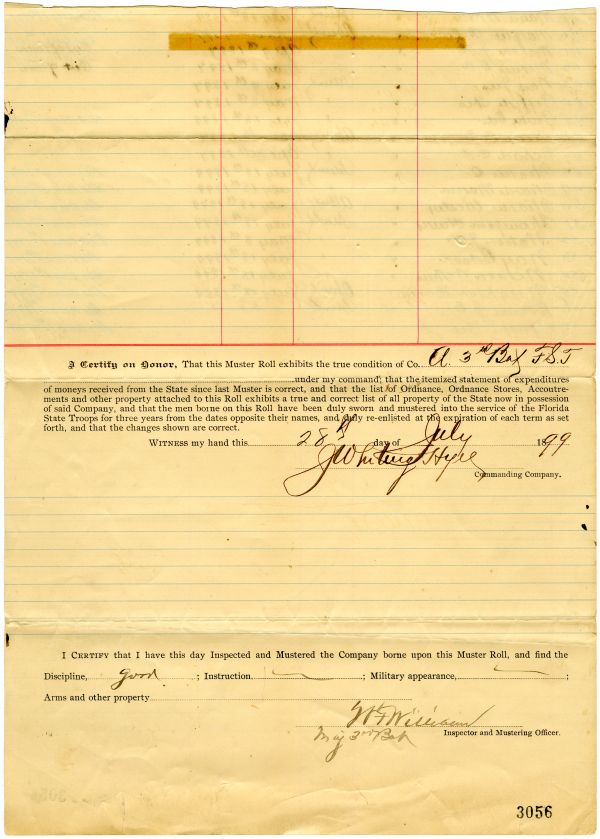 I Certify on Honor, That this Muster Roll exhibits the true condition of Co. A. 3rd Bat F.S.T
under my command; that the itemized statement of expenditures
of moneys received from the State since last Muster is correct, and that the list of Ordnance, Ordnance Stores, Accoutre-
ments and other property attached to this Roll exhibits a true and correct list of all property of the State now in possession
of said Company, and that the men borne on this Roll have been duly sworn and mustered into the service of the Florida
State Troops for three years from the dates opposite their names, and duly re-enlisted at the expiration of each term as set
forth, and that the changes shown are correct.
WITNESS my hand this 28th day of July 1899
J Whiting Hyer
Commanding Company.
I CERTIFY that I have this day Inspected and Mustered the Company borne upon this Muster Roll, and find the
Discipline, good ; Instruction ; Military appearance, ;
Arms and other property
W F Williams
Maj 3rd Bat Inspector and Mustering Officer.
3056